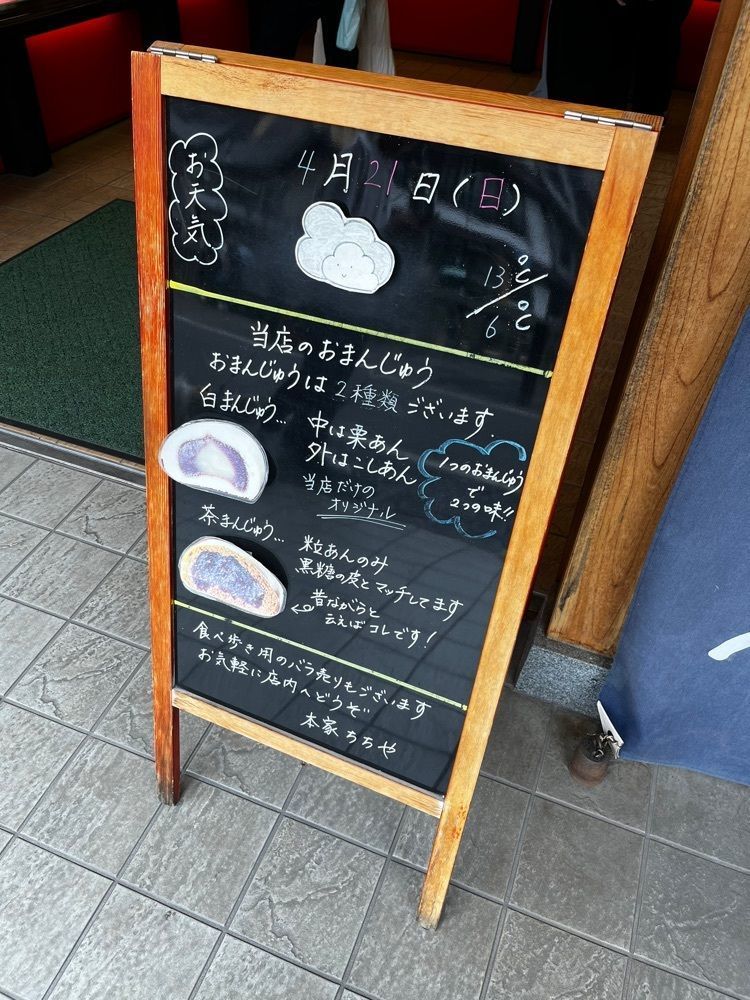 お天気
4月21日(日)
13℃/6℃
当店のおまんじゅう
おまんじゅうは2種類ございます.
白まんじゅう...
中は栗あん
外はこしあん
当店だけの
オリジナル
1つのおまんじゅう
で
2つの味!!
茶まんじゅう...
粒あんのみ
黒糖の皮とマッチしてます
昔ながらと
云えばコレです!
食べ歩き用のバラ売りもございます
お気軽に店内へどうぞ
本家ちちや